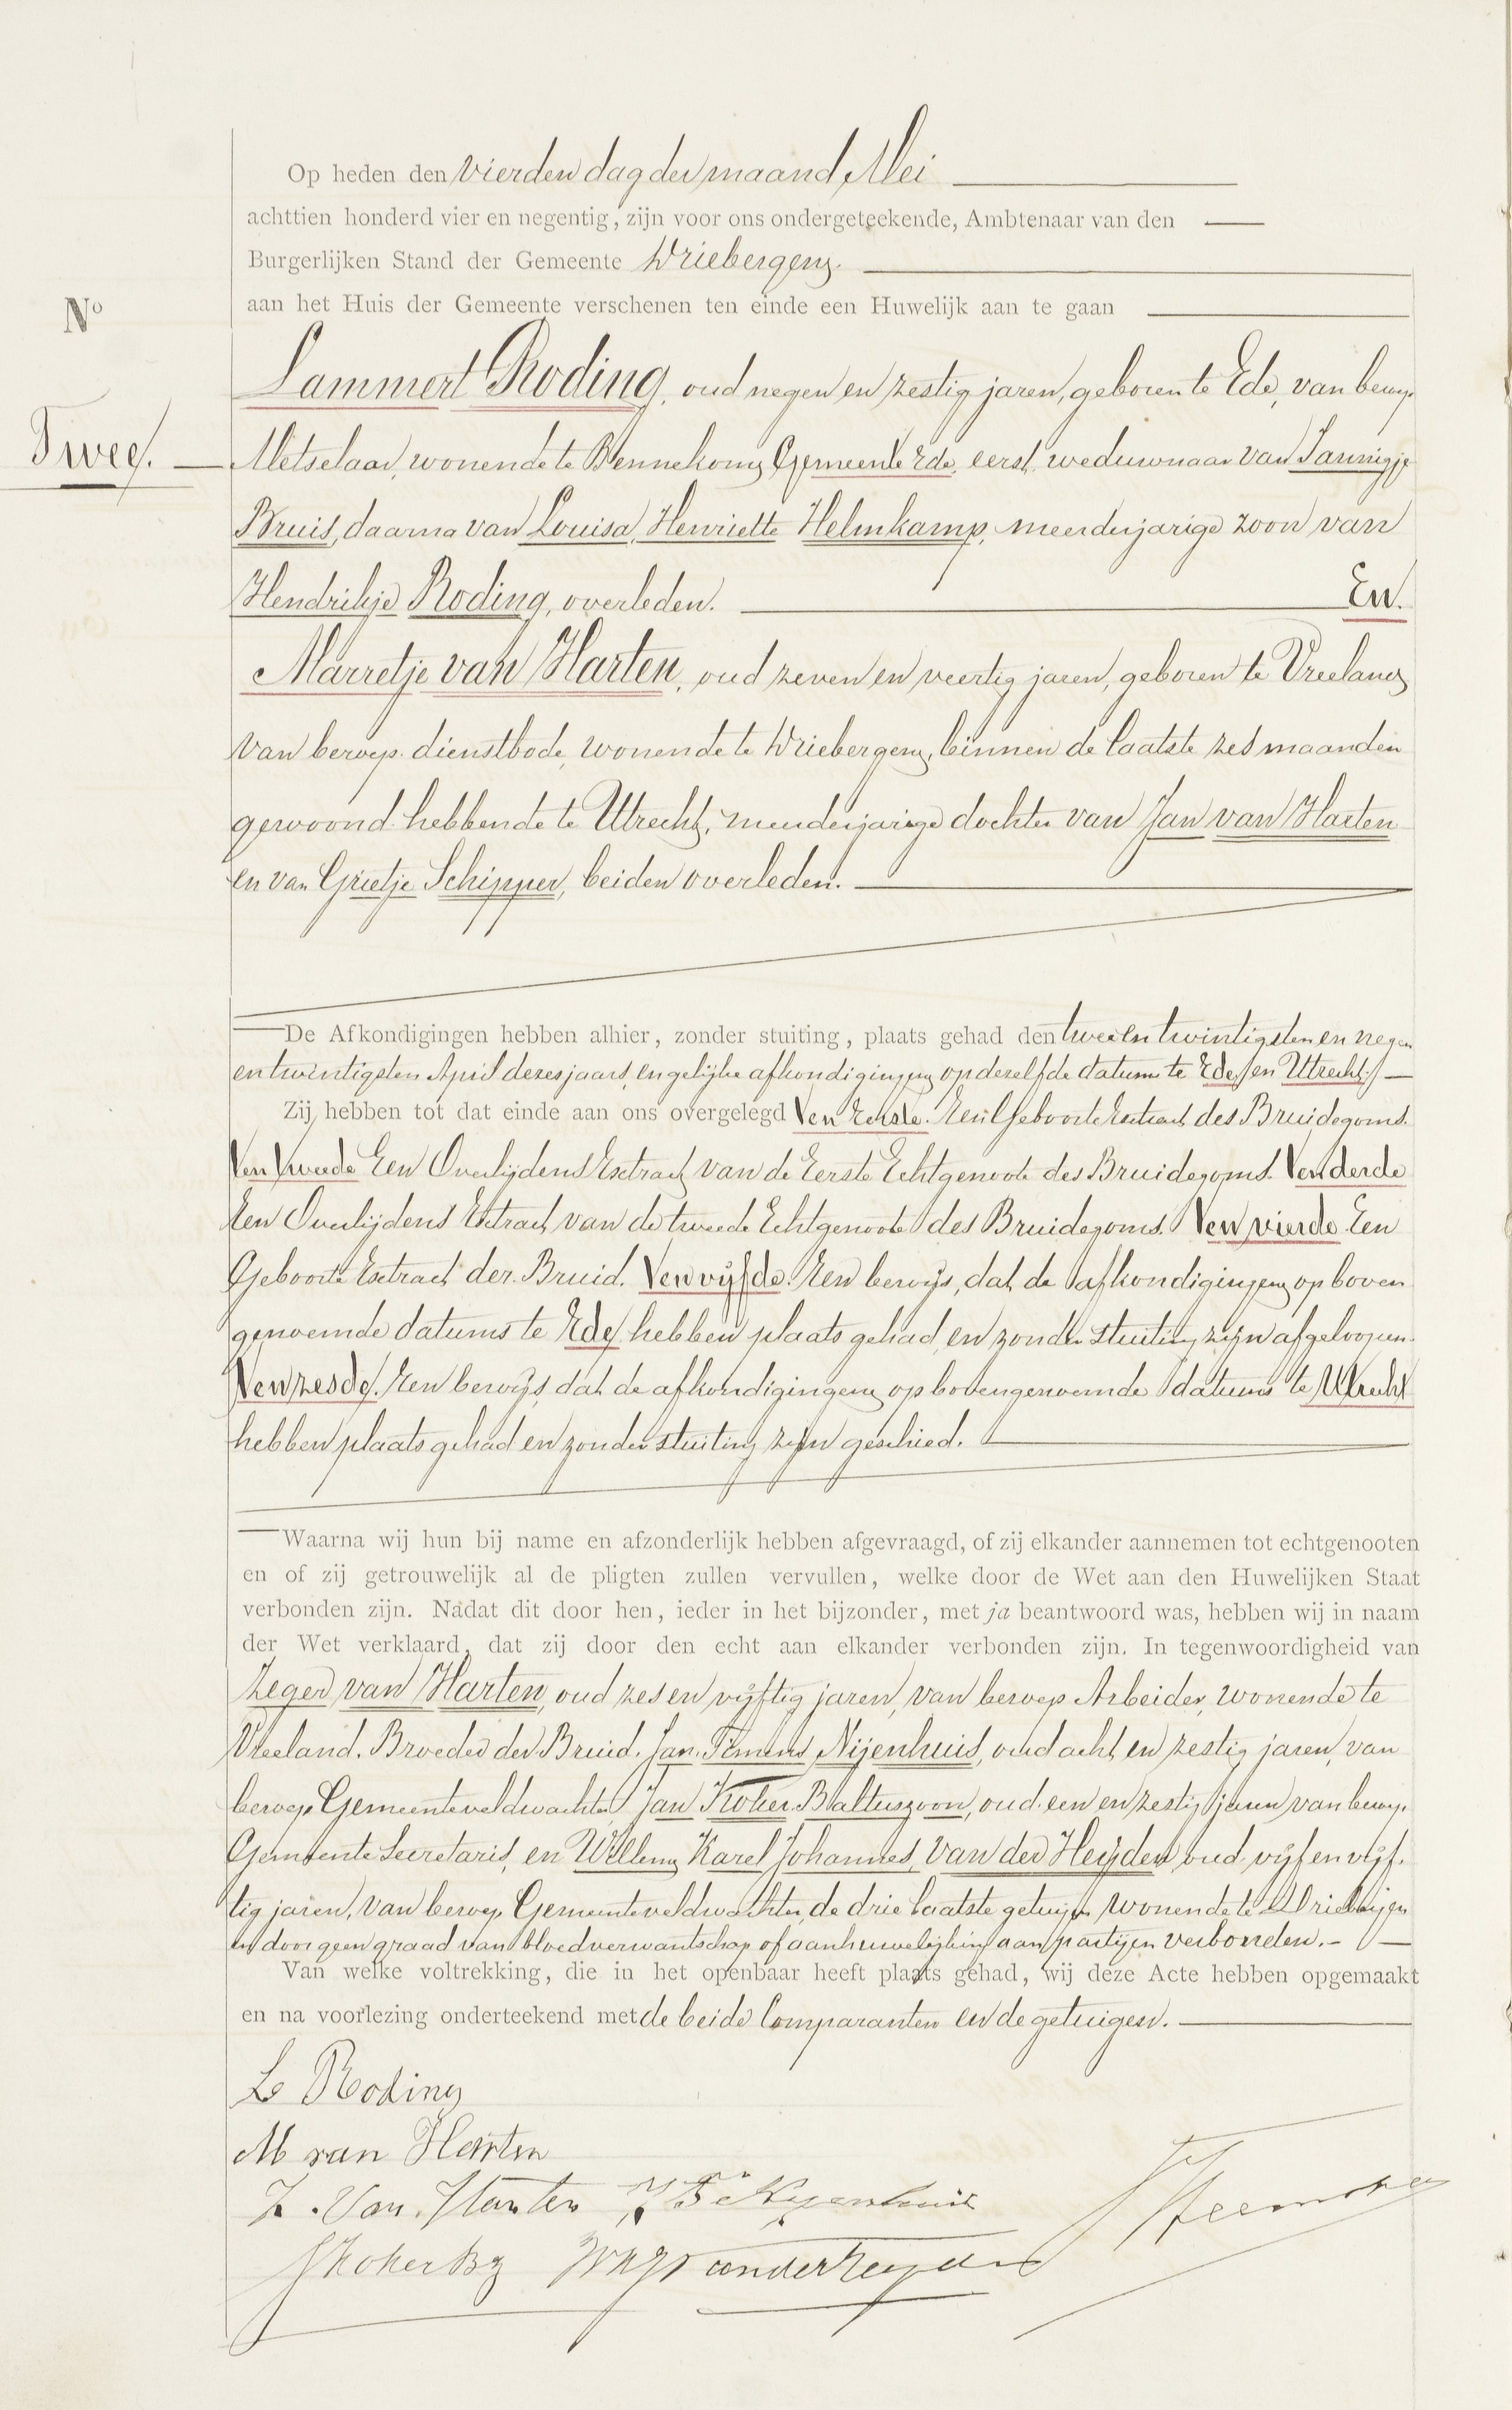 Op heden den vierden dag der maand Mei
achttien honderd vier en negentig, zijn voor ons ondergeteekende, Ambtenaar van den
Burgerlijken Stand der Gemeente Driebergen.
aan het Huis der Gemeente verschenen ten einde een Huwelijk aan te gaan
No
Lammert Roding, oud negen en zestig jaren, geboren te Ede, van beroep
Twee.
Metselaar, wonende te Bennekom, Gemeente Ede, eerst weduwnaar van Jannigje
Bruis, daarna van Louisa Henriette Helmkamp, meerderjarige zoon van
Hendrikje Roding, overleden. En
Marretje van Harten, oud zeven en veertig jaren, geboren te Vreeland
van beroep dienstbode, wonende te Driebergen, binnen de laatste zes maanden
gewoond hebbende te Utrecht, meerderjarige dochter van Jan van Harten
en van Grietje Schipper, beiden overleden.
De Afkondigingen hebben alhier, zonder stuiting, plaats gehad den twee en twintigsten en negen
en twintigsten April dezes jaars, en gelijke afkondigingen op dezelfde datums te Ede, en Utrecht.
Zij hebben tot dat einde aan ons overgelegd Ten Eerste. Een Geboorte Extract des Bruidegoms.
Ten tweede Een Overlijdens Extract van de Eerste Echtgenoote des Bruidegoms. Ten derde
Een Overlijdens Extract van de tweede Echtgenoote des Bruidegoms. Ten vierde Een
Geboorte Extract der Bruid. Ten vijfde. Een bewijs, dat de afkondigingen op boven
genoemde datums te Ede hebben plaats gehad, en zonder stuiting zijn afgeloopen.
Ten zesde. Een bewijs, dat de afkondigingen op bovengenoemde datums te Utrecht
hebben plaats gehad en zonder stuiting zijn geschied.
Waarna wij hun bij name en afzonderlijk hebben afgevraagd, of zij elkander aannemen tot echtgenooten
en of zij getrouwelijk al de pligten zullen vervullen, welke door de Wet aan den Huwelijken Staat
verbonden zijn. Nadat dit door hen, ieder in het bijzonder, met ja beantwoord was, hebben wij in naam
der Wet verklaard, dat zij door den echt aan elkander verbonden zijn. In tegenwoordigheid van
Zeger van Harten, oud zes en vijftig jaren, van beroep Arbeider, wonende te
Vreeland, Broeder der Bruid. Jan Timens Nijenhuis, oud acht en zestig jaren, van
beroep Gemeenteveldwachter, Jan Koker Baltuszoon, oud een en zestig jaren van beroep
Gemeente Secretaris, en Willem Karel Johannes van der Heyden, oud vijf en vijf-
tig jaren, van beroep Gemeenteveldwachter, de drie laatste getuigen wonende te Driebergen
en door geen graad van bloedverwantschap of aanhuwelijking aan partijen verbonden.
Van welke voltrekking, die in het openbaar heeft plaats gehad, wij deze Acte hebben opgemaakt
en na voorlezing onderteekend met de beide Comparanten en de getuigen.
L Roding
M van Harten
Z. Van Harten J T Nijenhuis
JKoker Bz WKJvanderHeyden